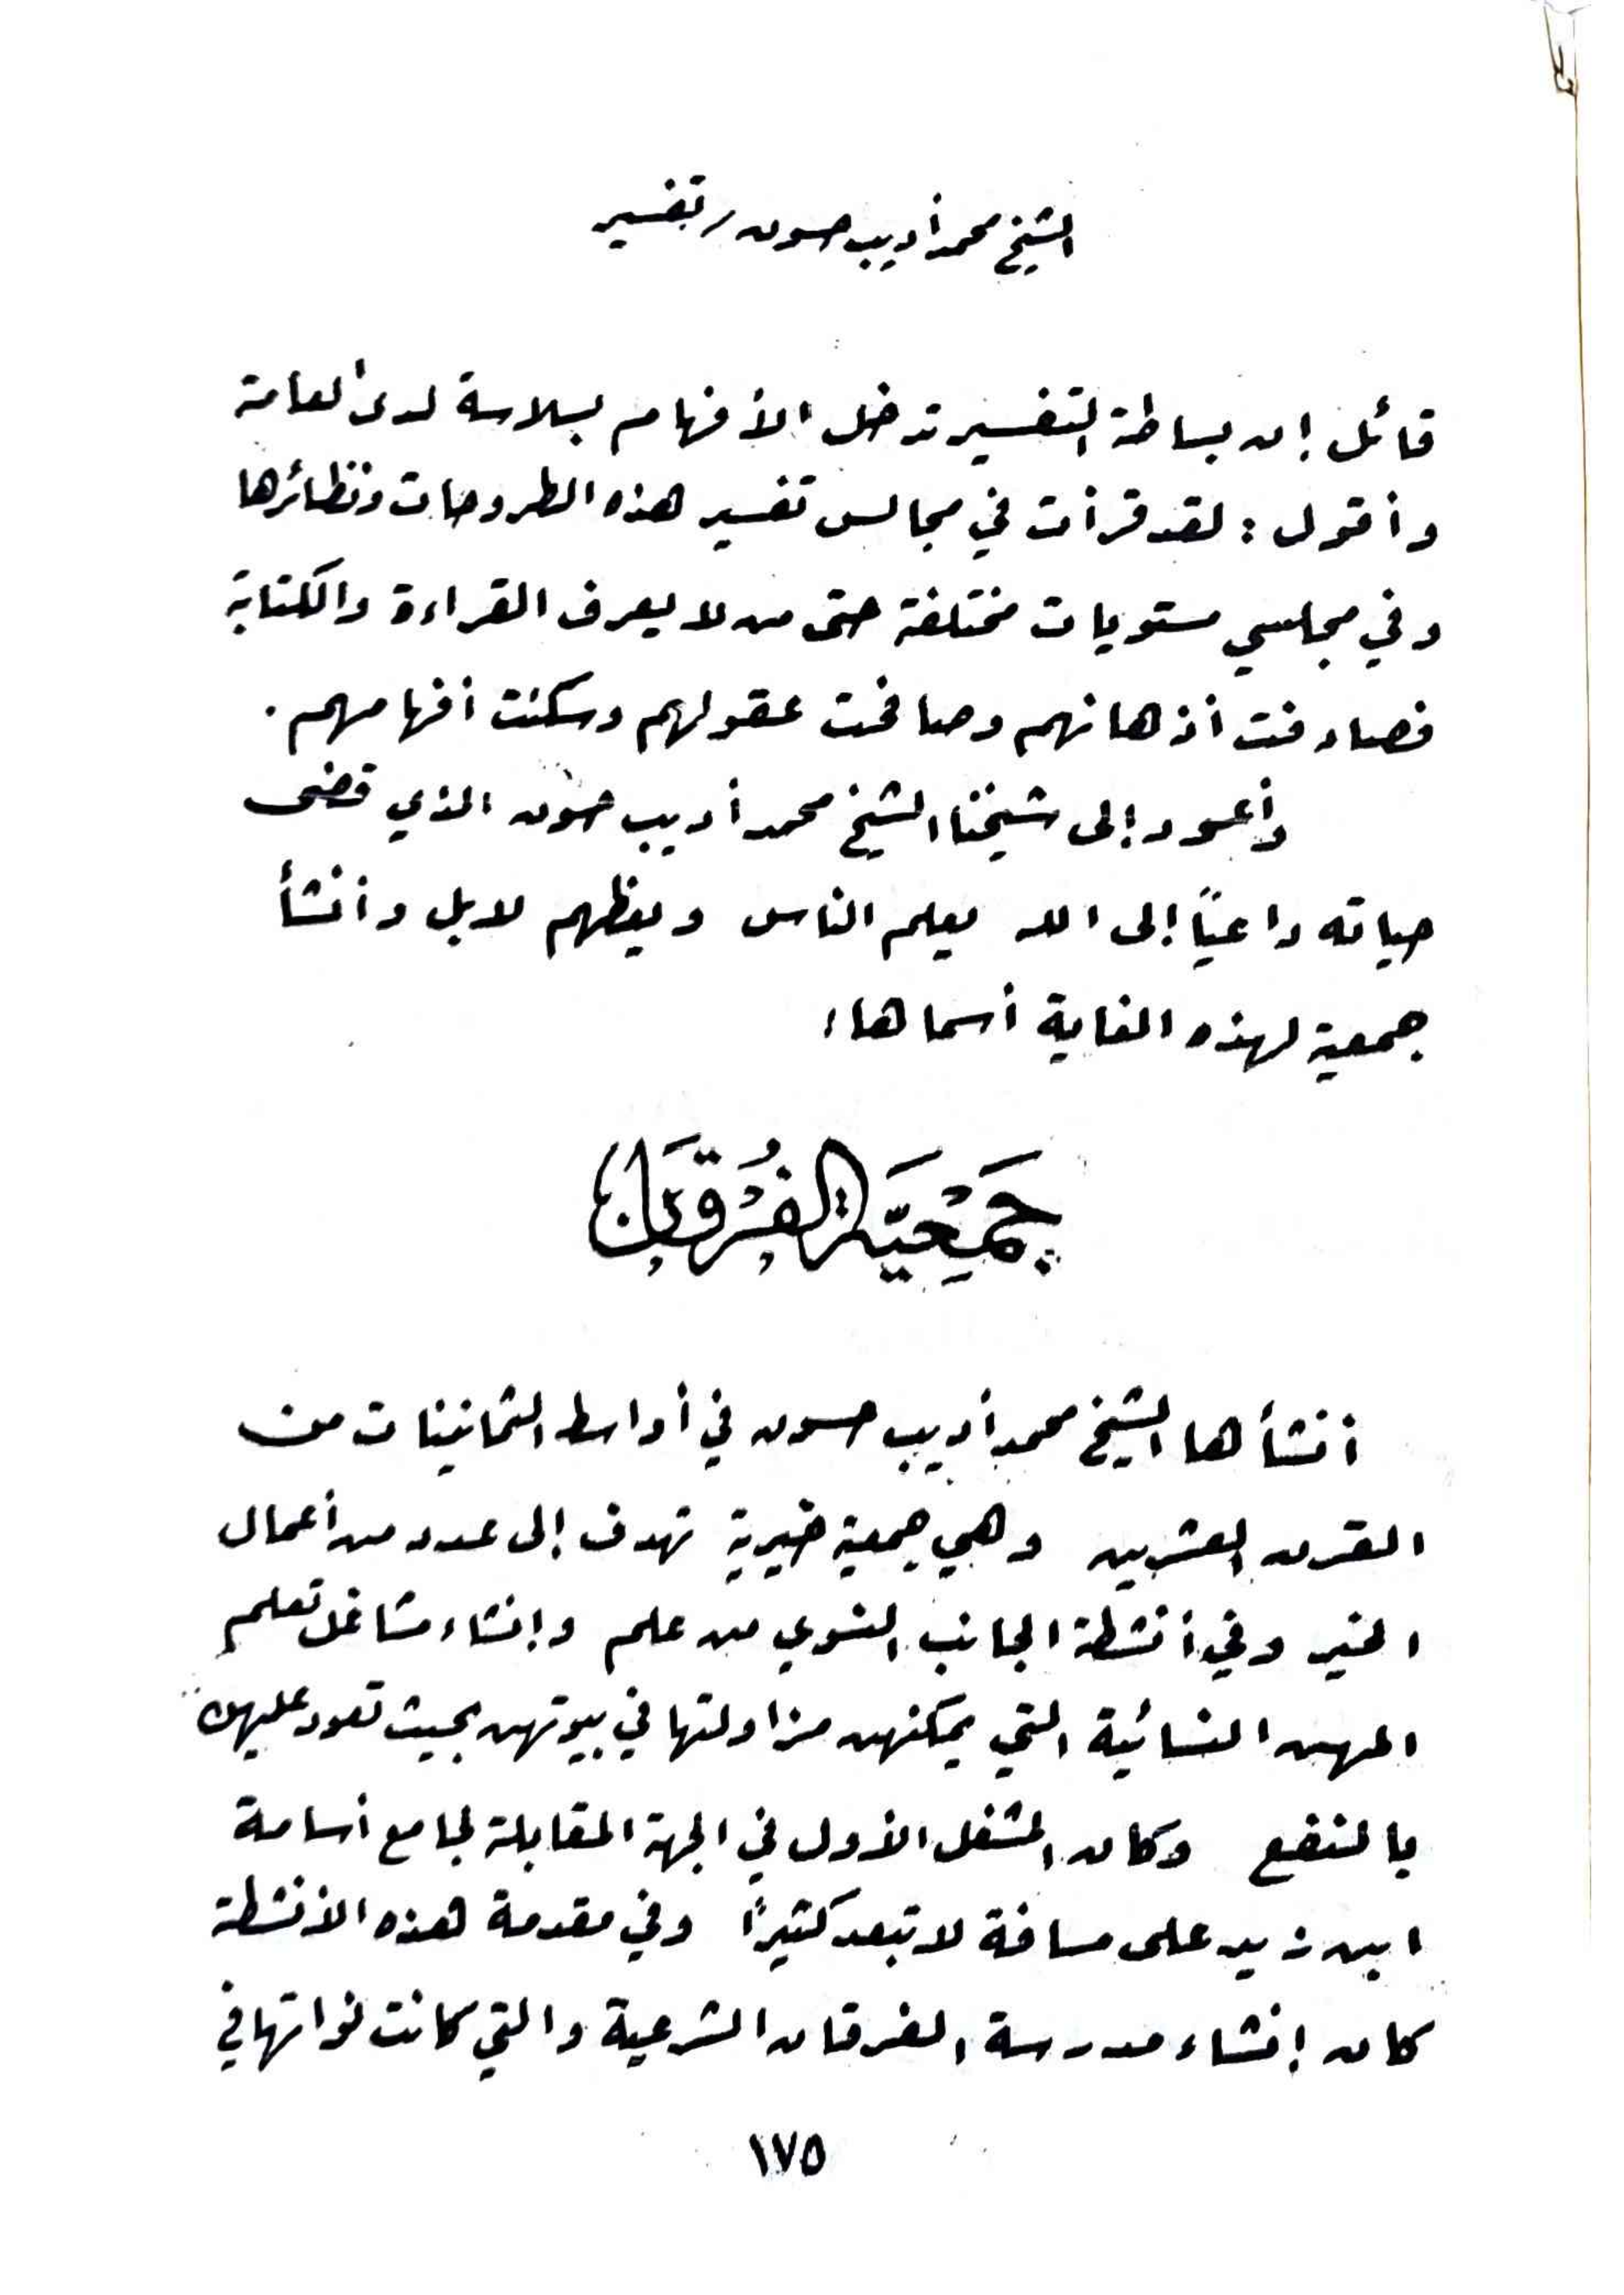 الشيخ محمد أديب حسون / تفسير
قائل إن بساطة التفسير تدخل الأفهام بسلاسة لدى العامة
وأقول : لقد قرأت في مجالس تفسير هذه الطروحات ونظائرها
وفي مجلسي مستويات مختلفة حتى من لا يعرف القراءة والكتابة
فصادفت أذهانهم وصافحت عقولهم وسكنت أفهامهم .
وأعود إلى شيخنا الشيخ محمد أديب حسون الذي قضى
حياته داعياً إلى الله يعلم الناس ويعظهم لا بل وأنشأ
جمعية لهذه الغاية أسماها :
جَمْعِيَّة الفُرْقَان
أنشأها الشيخ محمد أديب حسون في أواسط الثمانينات من
القرن العشرين وهي جمعية خيرية تهدف إلى عدد من أعمال
الخير وفي أنشطة الجانب النسوي من علم وإنشاء مشاغل تعلم
المهن النسائية التي يمكنهن مزاولتها في بيوتهن بحيث تعود عليهن
بالنفع وكان المشغل الأول في الجهة المقابلة لجامع أسامة
ابن زيد على مسافة لا تبعد كثيراً وفي مقدمة هذه الأنشطة
كان إنشاء مدرسة الفرقان الشرعية والتي كانت نواتها في
١٧٥